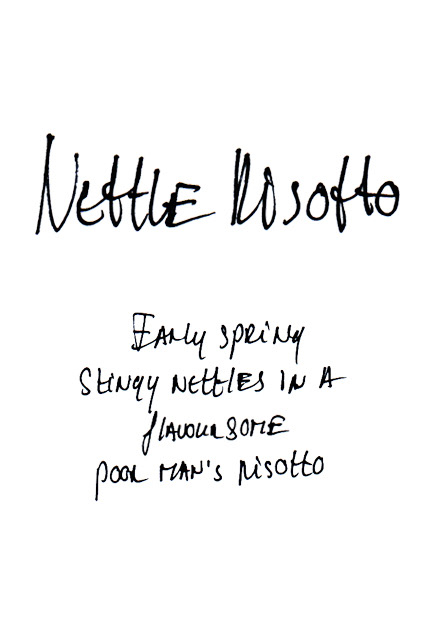 Nettle Risotto
Early spring
Stingy nettles in a
flavoursome
poor man's risotto